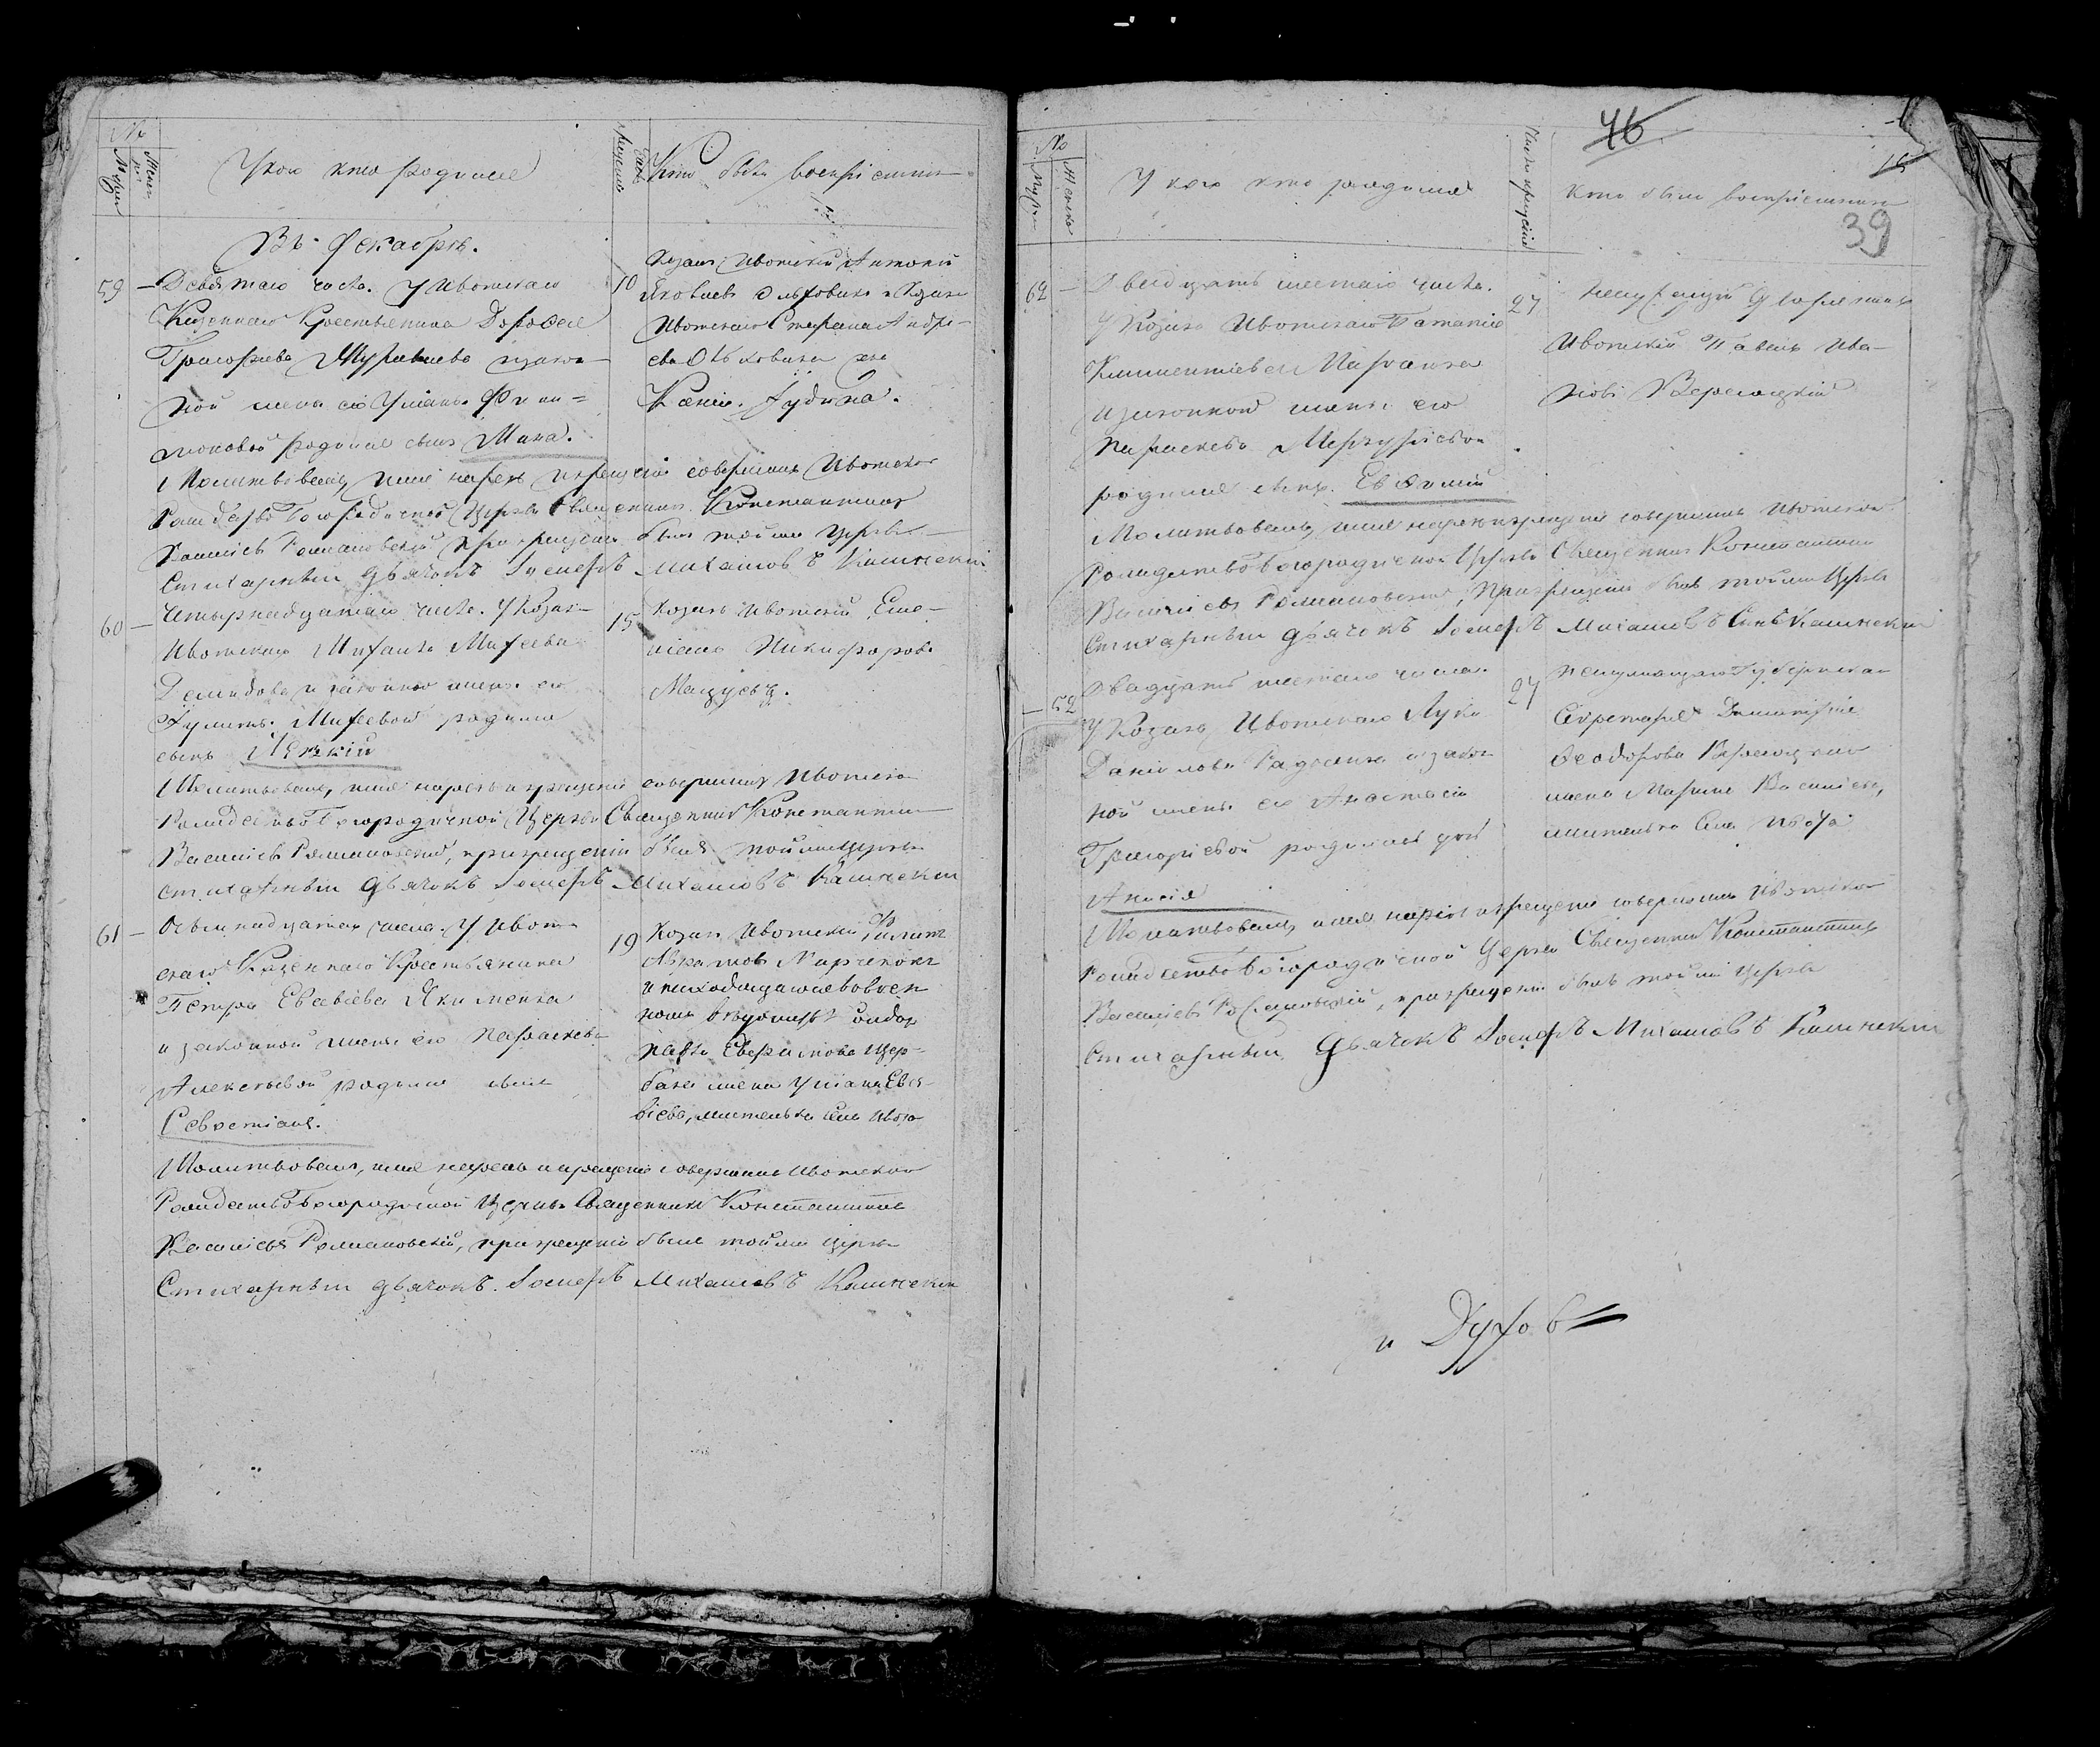 №
Мужеск
Женск
У кого кто родился
Число крещенія
Кто были воспріемники
Въ Декабрѣ.
59 — Девятаго числа. У Ивотскаго
Казеннаго Крестьянина Дорофея
Григорьева Журавлева и закон-
ной жены его Ульяны Фили-
моновой родился сынъ Мина.
10
Козакъ Ивотскій Антоній
Яковлевъ Ольховикъ и Козака
Ивотскаго Стефана Андре-
ева Ольховика жена
Ксенія.
Молитвовалъ, имя нарекъ и крещеніе совершилъ Ивотской
Рождество Богородичной Церкви Священникъ Константинъ
Василіевъ Романовскій, при крещеніи былъ тойже Церкви
Стихарный Дьячокъ Іосифъ Михаиловъ Калинскій
60 — Четырнадцатаго числа. У Козака
Ивотскаго Михаила Михеева
Демидова и законной жены его
Михеевой родился
сынъ
15
Козакъ Ивотскій Еме-
ліанъ Никифоровъ
Молитвовалъ, имя нарекъ и крещеніе совершилъ Ивотской
Рождество Богородичной Церкви Священникъ Константинъ
Василіевъ Романовскій, при крещеніи былъ тойже Церкви
Стихарный Дьячокъ Іосифъ Михаиловъ Калинскій
61 — Осьмнадцатаго числа. У Ивот-
скаго Казеннаго Крестьянина
Петра Евсевіева Якименка
и законной жены его Параскевы
Алексѣевой родился сынъ
Севастіанъ.
19
Козакъ Ивотскій Филиппъ
Марченокъ
и находящагося въ воен-
номъ вѣдомствѣ солдата
Щер-
бака жена Ульяна Евсе-
віева, жителька села Ивота
Молитвовалъ, имя нарекъ и крещеніе совершилъ Ивотской
Рождество Богородичной Церкви Священникъ Константинъ
Василіевъ Романовскій, при крещеніи былъ тойже Церкви
Стихарный Дьячокъ Іосифъ Михаиловъ Калинскій
46
39
№
Мужск
Женскъ
У кого кто родился
Число крещенія
Кто были воспріемники
62 — Двадцать шестаго числа.
У Козака Ивотскаго
Климентіева
и законной жены его
Параскевы Меркуріевой
родился сынъ Евфимій
27
Неслужащій Дворянинъ
Ивотскій Павелъ Ива-
новъ Верещцкій
Молитвовалъ, имя нарекъ и крещеніе совершилъ Ивотской
Рождество Богородичной Церкви Священникъ Константинъ
Василіевъ Романовскій, при крещеніи былъ тойже Церкви
Стихарный Дьячокъ Іосифъ Михаиловъ Сынъ Калинскій
— 52 Двадцать шестаго числа.
У Козака Ивотскаго Луки
Даніилова и закон-
ной жены его Анастасіи
Григоріевой родилась дочь
Анисія
27
Неслужащаго Губернскаго
Секретаря Димитрія
Ѳеодорова
жена Марина Василіева,
жителька села Ивота
Молитвовалъ, имя нарекъ и крещеніе совершилъ Ивотской
Рождество Богородичной Церкви Священникъ Константинъ
Василіевъ Романовскій, при крещеніи былъ тойже Церкви
Стихарный Дьячокъ Іосифъ Михаиловъ Калинскій
и Духов=